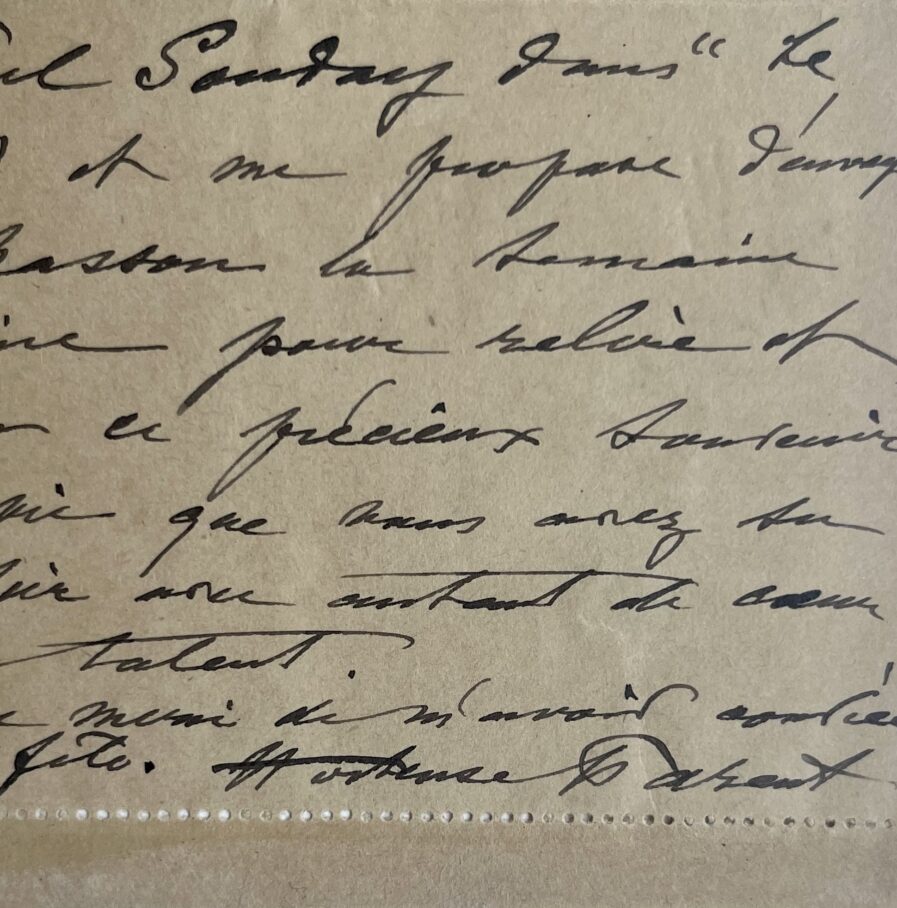 Souday dans " Le
et me propose d'envoy
la semaine
ine pour relire et
ce précieux souvenir
vie que vous avez su
lir avec autant de cœur
talent.
merci de m'avoir conviée
fête. Hortense Parent